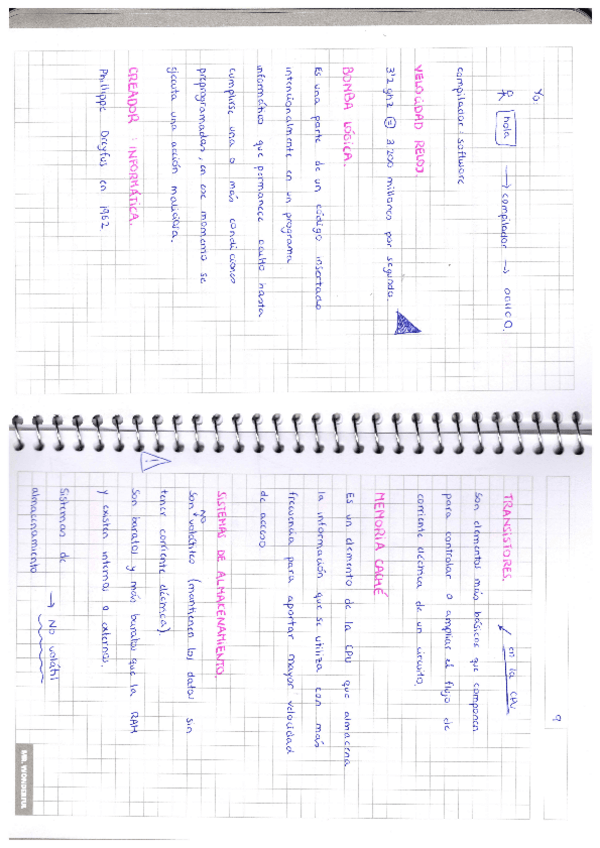 Yo:
hola → compilador → 001100.
compilador: software
VELOCIDAD RELOJ.
3'2 ghz = 3'200 millones por segundo.
BOMBA LÓGICA.
Es una parte de un código insertado
intencionalmente en un programa
informático que permanece oculto hasta
cumplirse una o más condiciones
preprogramadas, en ese momento se
ejecuta una acción maliciosa.
CREADOR INFORMÁTICA.
Phillippe Dreyfus en 1962
9
TRANSISTORES. en la CPU
Son elementos más básicos que componen
para controlar o ampliar el flujo de
corriente eléctrica de un circuito.
MEMORIA CACHÉ
Es un elemento de la CPU que almacena
la información que se utiliza con más
frecuencia para aportar mayor velocidad
de acceso
SISTEMAS DE ALMACENAMIENTO.
!
Son NO volátiles (mantienen los datos sin
tener corriente eléctrica).
Son baratos y más baratos que la RAM
y existen internos o externos.
Sistemas de
almacenamiento → No volátil
MR. WONDERFUL